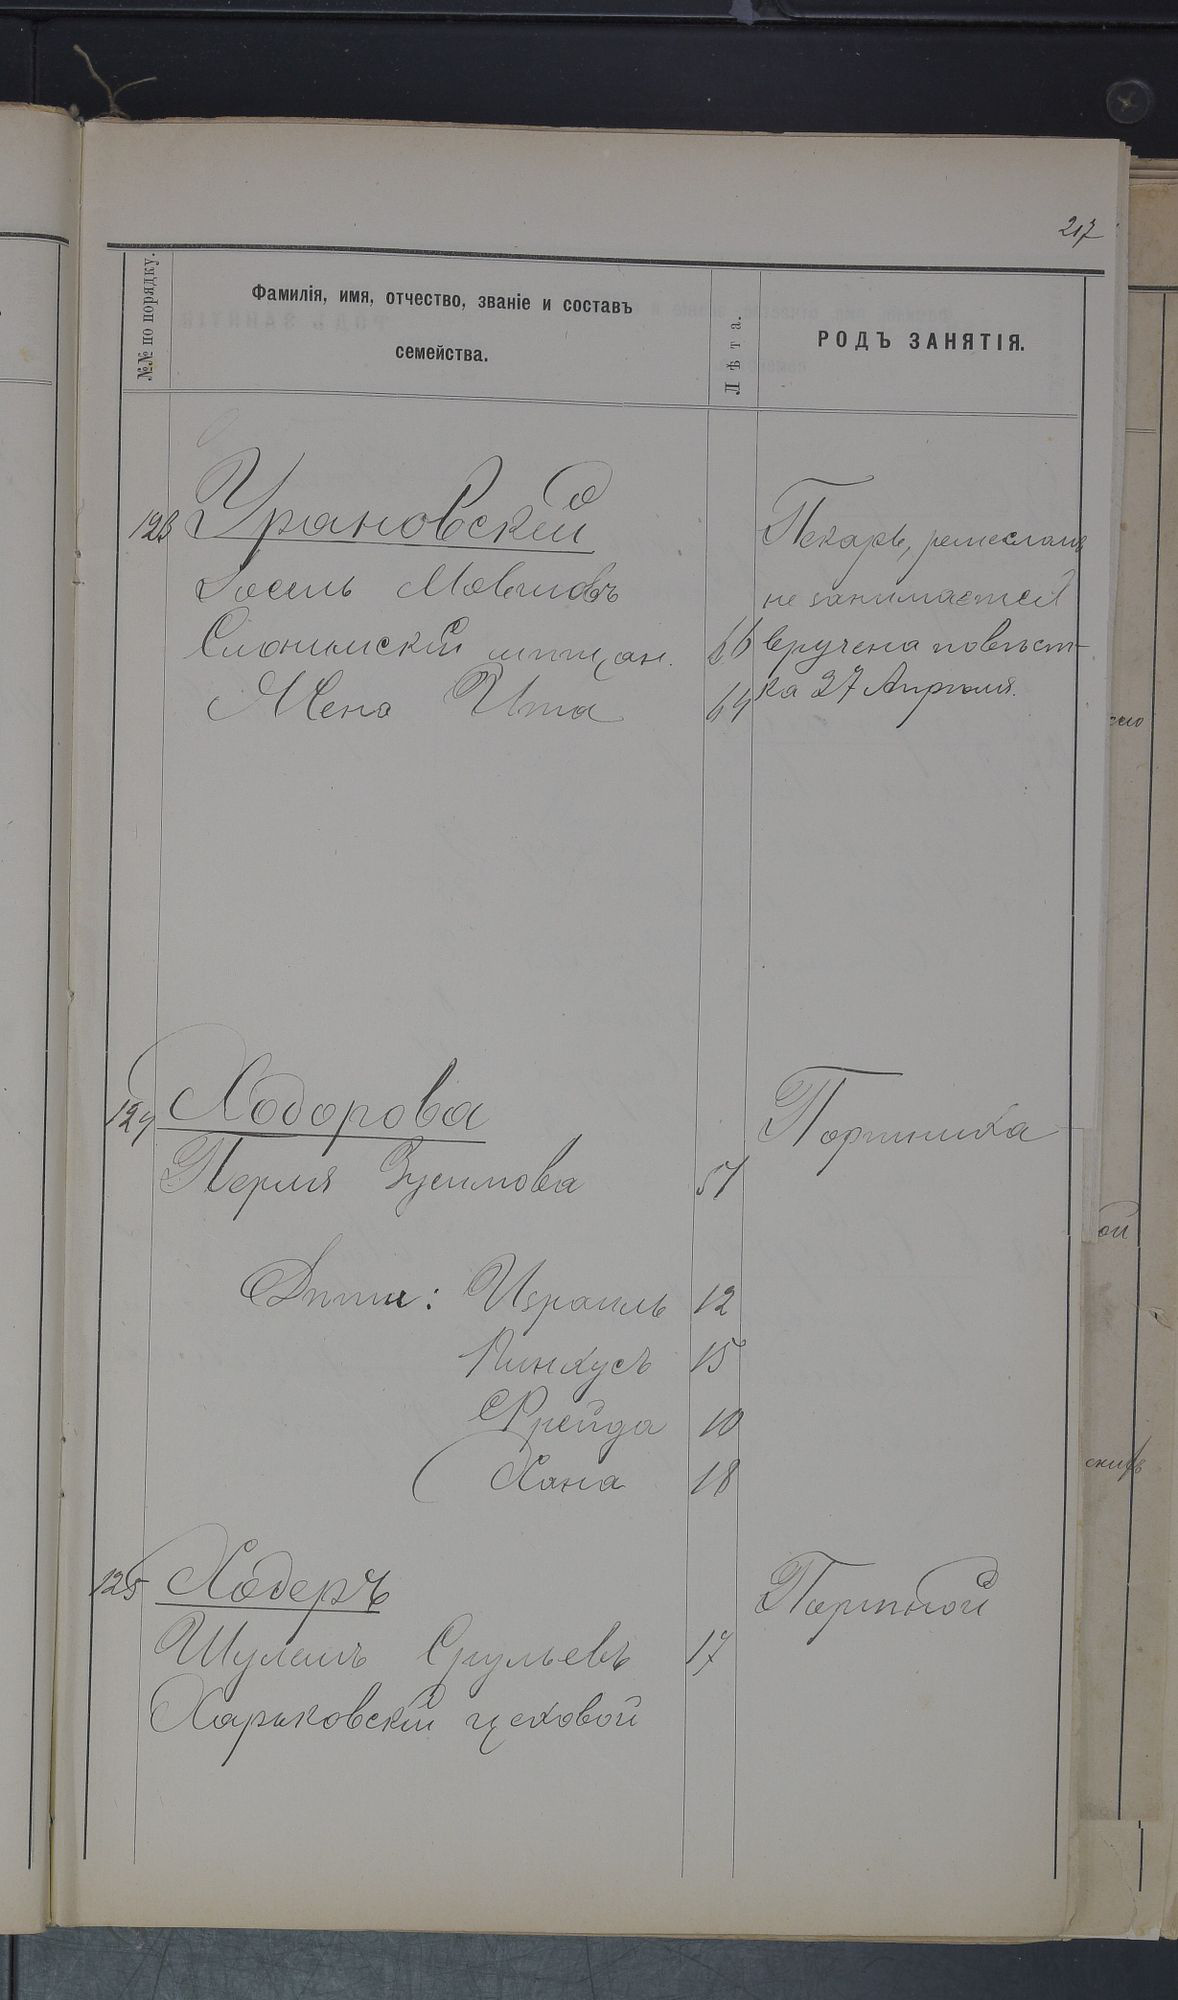 217
№№ по порядку.
Фамилія, имя, отчество, званіе и составъ
семейства.
Лѣта.
РОДЪ ЗАНЯТІЯ.
123 Урановскій
Іосель Мовшовъ
Слонимскій мѣщан. 66
Жена Ита 64
Пекарь, ремесломъ
не занимается
вручена повѣст-
ка 27 Апрѣля.
124 Ходорова Портниха
Перля Зусимова 51
Дѣти: Израиль 12
Пинхусъ 15
Фрейда 10
Хана 18
125 Ходеръ Портной
Шулемъ Срульевъ 17
Харьковскій цеховой